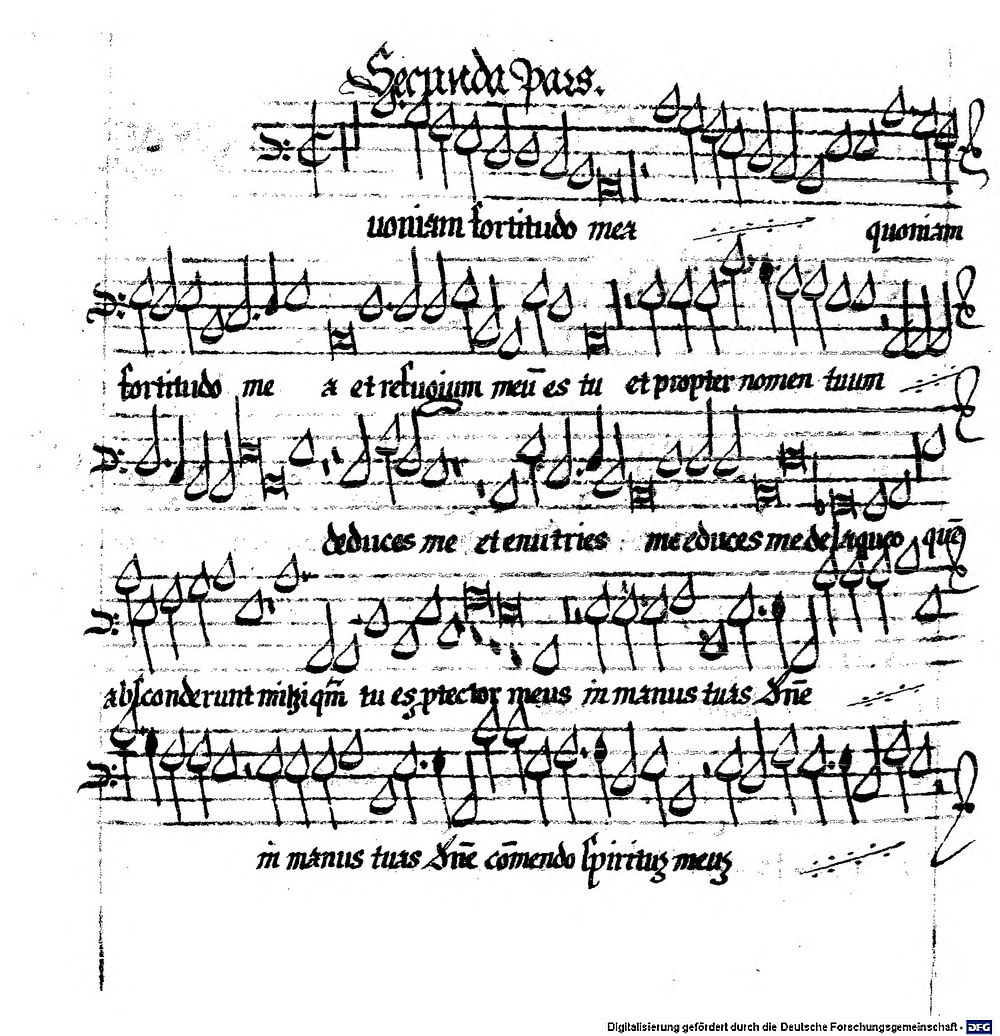 Secunda Pars.
uoniam fortitudo mea quoniam
fortitudo me a et refugium meū es tu et propter nomen tuum
deduces me et enutries me educes me de laqueo quē
absconderunt mihi qm̄ tu es ptector meus in manus tuas dn̄e
in manus tuas dn̄e cōmendo spirituꝫ meuꝫ
Digitalisierung gefördert durch die Deutsche Forschungsgemeinschaft - DFG